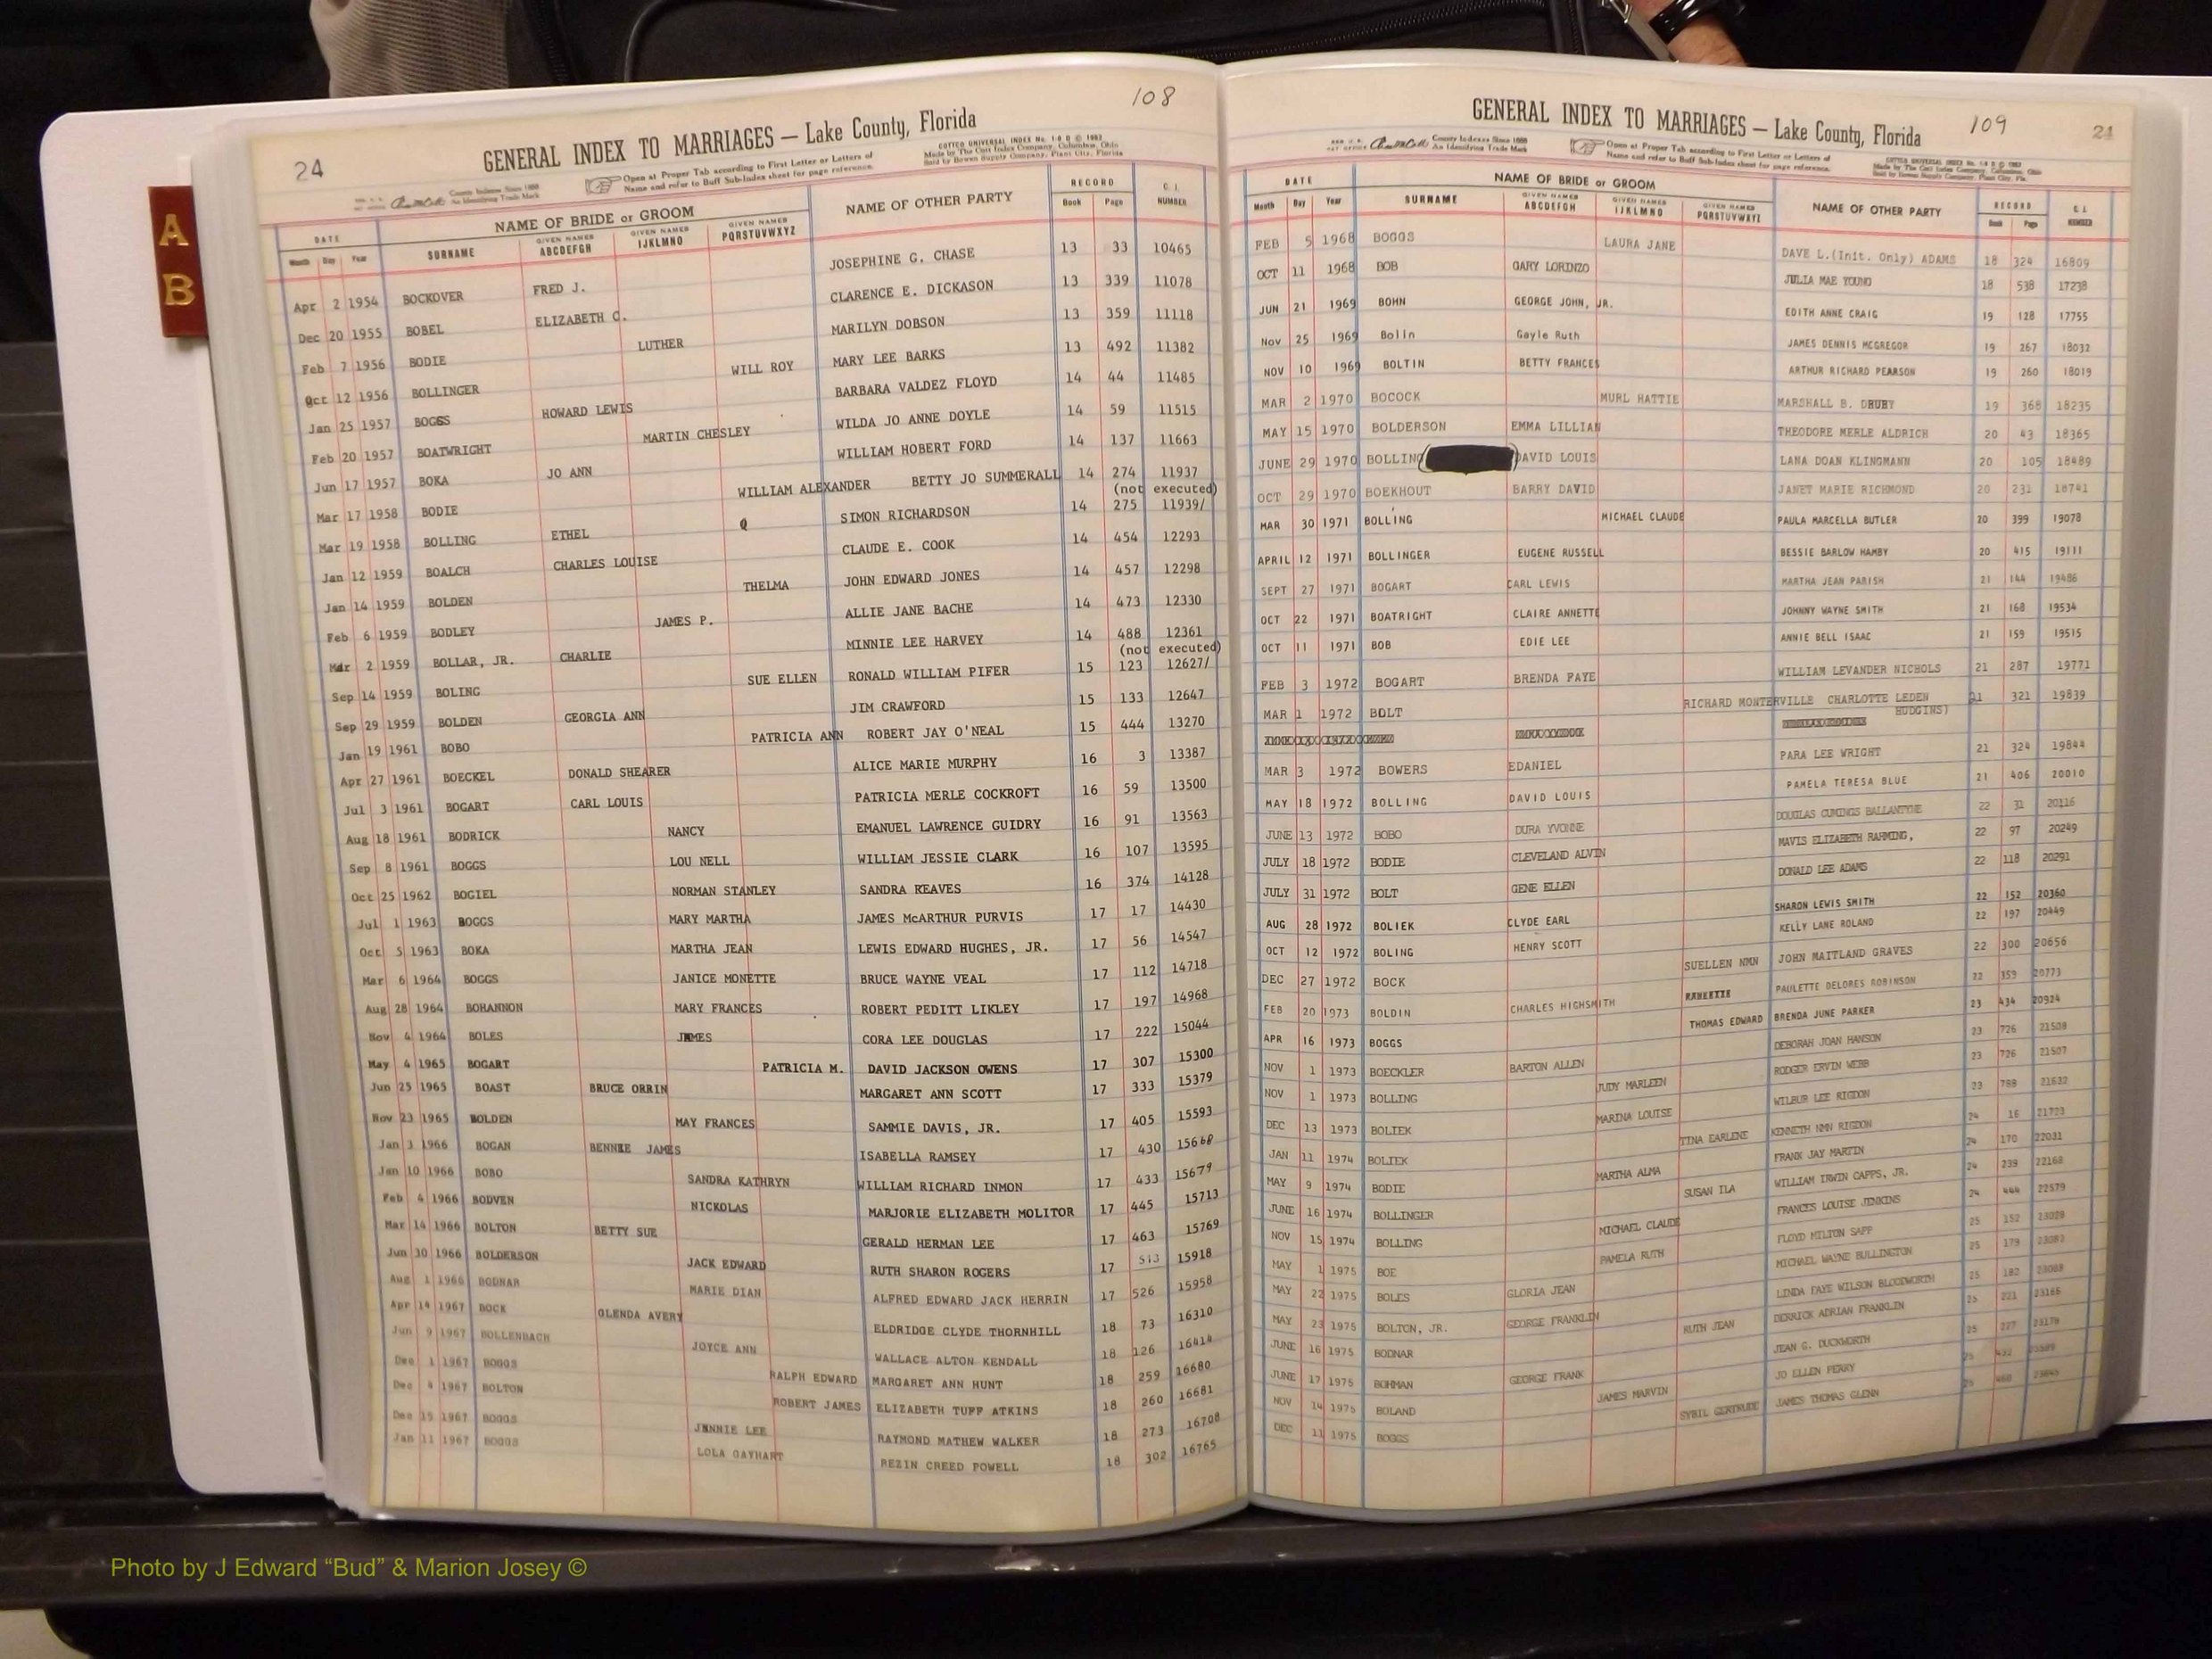 A
B
24
108
GENERAL INDEX TO MARRIAGES — Lake County, Florida
County Indexes Since 1888
An Identifying Trade Mark
Open at Proper Tab according to First Letter or Letters of
Name and refer to Buff Sub-Index sheet for page reference.
COTTCO UNIVERSAL INDEX No.
Made by The Cott Index Company, Columbus, Ohio
Sold by Bowen Supply Company, Plant City, Florida
DATE NAME OF BRIDE or GROOM NAME OF OTHER PARTY RECORD C. I. NUMBER
Month Day Year SURNAME GIVEN NAMES ABCDEFGH GIVEN NAMES IJKLMNO GIVEN NAMES PQRSTUVWXYZ Book Page
Apr 2 1954 BOCKOVER FRED J. JOSEPHINE G. CHASE 13 33 10465
Dec 20 1955 BOBEL ELIZABETH C. CLARENCE E. DICKASON 13 339 11078
Feb 7 1956 BODIE LUTHER MARILYN DOBSON 13 359 11118
Oct 12 1956 BOLLINGER WILL ROY MARY LEE BARKS 13 492 11382
Jan 25 1957 BOGGS HOWARD LEWIS BARBARA VALDEZ FLOYD 14 44 11485
Feb 20 1957 BOATWRIGHT MARTIN CHESLEY WILDA JO ANNE DOYLE 14 59 11515
Jun 17 1957 BOKA JO ANN WILLIAM HOBERT FORD 14 137 11663
Mar 17 1958 BODIE WILLIAM ALEXANDER BETTY JO SUMMERALL 14 274 11937
(not executed)
Mar 19 1958 BOLLING ETHEL SIMON RICHARDSON 14 275 11939/
Jan 12 1959 BOALCH CHARLES LOUISE CLAUDE E. COOK 14 454 12293
Jan 14 1959 BOLDEN THELMA JOHN EDWARD JONES 14 457 12298
Feb 6 1959 BODLEY JAMES P. ALLIE JANE BACHE 14 473 12330
Mar 2 1959 BOLLAR, JR. CHARLIE MINNIE LEE HARVEY 14 488 12361
(not executed)
Sep 14 1959 BOLING SUE ELLEN RONALD WILLIAM PIFER 15 123 12627/
Sep 29 1959 BOLDEN GEORGIA ANN JIM CRAWFORD 15 133 12647
Jan 19 1961 BOBO PATRICIA ANN ROBERT JAY O'NEAL 15 444 13270
Apr 27 1961 BOECKEL DONALD SHEARER ALICE MARIE MURPHY 16 3 13387
Jul 3 1961 BOGART CARL LOUIS PATRICIA MERLE COCKROFT 16 59 13500
Aug 18 1961 BODRICK NANCY EMANUEL LAWRENCE GUIDRY 16 91 13563
Sep 8 1961 BOGGS LOU NELL WILLIAM JESSIE CLARK 16 107 13595
Oct 25 1962 BOGIEL NORMAN STANLEY SANDRA REAVES 16 374 14128
Jul 1 1963 BOGGS MARY MARTHA JAMES McARTHUR PURVIS 17 17 14430
Oct 5 1963 BOKA MARTHA JEAN LEWIS EDWARD HUGHES, JR. 17 56 14547
Mar 6 1964 BOGGS JANICE MONETTE BRUCE WAYNE VEAL 17 112 14718
Aug 28 1964 BOHANNON MARY FRANCES ROBERT PEDITT LIKLEY 17 197 14968
Nov 4 1964 BOLES JAMES CORA LEE DOUGLAS 17 222 15044
May 4 1965 BOGART PATRICIA M. DAVID JACKSON OWENS 17 307 15300
Jun 25 1965 BOAST BRUCE ORRIN MARGARET ANN SCOTT 17 333 15379
Nov 23 1965 BOLDEN MAY FRANCES SAMMIE DAVIS, JR. 17 405 15593
Jan 3 1966 BOGAN BENNIE JAMES ISABELLA RAMSEY 17 430 15668
Jan 10 1966 BOBO SANDRA KATHRYN WILLIAM RICHARD INMON 17 433 15679
Feb 4 1966 BODVEN NICKOLAS MARJORIE ELIZABETH MOLITOR 17 445 15713
Mar 14 1966 BOLTON BETTY SUE GERALD HERMAN LEE 17 463 15769
Jun 30 1966 BOLDERSON JACK EDWARD RUTH SHARON ROGERS 17 513 15918
Aug 1 1966 BODNAR MARIE DIAN ALFRED EDWARD JACK HERRIN 17 526 15958
Apr 14 1967 BOCK GLENDA AVERY ELDRIDGE CLYDE THORNHILL 18 73 16310
Jun 9 1967 BOLLENBACH JOYCE ANN WALLACE ALTON KENDALL 18 126 16414
Dec 1 1967 BOGGS RALPH EDWARD MARGARET ANN HUNT 18 259 16680
Dec 4 1967 BOLTON ROBERT JAMES ELIZABETH TUFF ATKINS 18 260 16681
Dec 15 1967 BOGGS JENNIE LEE RAYMOND MATHEW WALKER 18 273 16708
Jan 11 1967 BOGGS LOLA GAYHART REZIN CREED POWELL 18 302 16765
109
24
GENERAL INDEX TO MARRIAGES — Lake County, Florida
County Indexes Since 1888
An Identifying Trade Mark
Open at Proper Tab according to First Letter or Letters of
Name and refer to Buff Sub-Index sheet for page reference.
COTTCO UNIVERSAL INDEX No.
Made by The Cott Index Company, Columbus, Ohio
Sold by Bowen Supply Company, Plant City, Fla.
DATE NAME OF BRIDE or GROOM NAME OF OTHER PARTY RECORD C. I. NUMBER
Month Day Year SURNAME GIVEN NAMES ABCDEFGH GIVEN NAMES IJKLMNO GIVEN NAMES PQRSTUVWXYZ Book Page
FEB 5 1968 BOGGS LAURA JANE DAVE L.(Init. Only) ADAMS 18 324 16809
OCT 11 1968 BOB GARY LORINZO JULIA MAE YOUNG 18 538 17238
JUN 21 1969 BOHN GEORGE JOHN, JR. EDITH ANNE CRAIG 19 128 17755
Nov 25 1969 Bolin Gayle Ruth JAMES DENNIS MCGREGOR 19 267 18032
NOV 10 1969 BOLTIN BETTY FRANCES ARTHUR RICHARD PEARSON 19 260 18019
MAR 2 1970 BOCOCK MURL HATTIE MARSHALL B. DRURY 19 368 18235
MAY 15 1970 BOLDERSON EMMA LILLIAN THEODORE MERLE ALDRICH 20 43 18365
JUNE 29 1970 BOLLING DAVID LOUIS LANA DOAN KLINGMANN 20 105 18489
OCT 29 1970 BOEKHOUT BARRY DAVID JANET MARIE RICHMOND 20 231 18741
MAR 30 1971 BOLLING MICHAEL CLAUDE PAULA MARCELLA BUTLER 20 399 19078
APRIL 12 1971 BOLLINGER EUGENE RUSSELL BESSIE BARLOW HAMBY 20 415 19111
SEPT 27 1971 BOGART CARL LEWIS MARTHA JEAN PARISH 21 144 19486
OCT 22 1971 BOATRIGHT CLAIRE ANNETTE JOHNNY WAYNE SMITH 21 168 19534
OCT 11 1971 BOB EDIE LEE ANNIE BELL ISAAC 21 159 19515
FEB 3 1972 BOGART BRENDA FAYE WILLIAM LEVANDER NICHOLS 21 287 19771
MAR 1 1972 BOLT RICHARD MONTERVILLE CHARLOTTE LEDEN 21 321 19839
HUDGINS)
MAR 3 1972 BOWERS EDANIEL PARA LEE WRIGHT 21 324 19844
MAY 18 1972 BOLLING DAVID LOUIS PAMELA TERESA BLUE 21 406 20010
JUNE 13 1972 BOBO DURA YVONNE DOUGLAS CUMINGS BALLANTYNE 22 31 20116
JULY 18 1972 BODIE CLEVELAND ALVIN MAVIS ELIZABETH RAHMING, 22 97 20249
JULY 31 1972 BOLT GENE ELLEN DONALD LEE ADAMS 22 118 20291
AUG 28 1972 BOLIEK CLYDE EARL SHARON LEWIS SMITH 22 152 20360
OCT 12 1972 BOLING HENRY SCOTT KELLY LANE ROLAND 22 197 20449
DEC 27 1972 BOCK SUELLEN NMN JOHN MAITLAND GRAVES 22 300 20656
FEB 20 1973 BOLDIN CHARLES HIGHSMITH PAULETTE DELORES ROBINSON 22 359 20773
APR 16 1973 BOGGS THOMAS EDWARD BRENDA JUNE PARKER 23 434 20924
NOV 1 1973 BOECKLER BARTON ALLEN DEBORAH JOAN HANSON 23 726 21508
NOV 1 1973 BOLLING JUDY MARLEEN RODGER ERVIN WEBB 23 726 21507
DEC 13 1973 BOLIEK MARINA LOUISE WILBUR LEE RIGDON 23 788 21632
JAN 11 1974 BOLIEK TINA EARLENE KENNETH NMN RIGDON 24 16 21723
MAY 9 1974 BODIE MARTHA ALMA FRANK JAY MARTIN 24 170 22031
JUNE 16 1974 BOLLINGER SUSAN ILA WILLIAM IRWIN CAPPS, JR. 24 239 22168
NOV 15 1974 BOLLING MICHAEL CLAUDE FRANCES LOUISE JENKINS 24 444 22579
MAY 1 1975 BOE PAMELA RUTH FLOYD MILTON SAPP 25 152 23028
MAY 22 1975 BOLES GLORIA JEAN MICHAEL WAYNE BULLINGTON 25 179
MAY 23 1975 BOLTON, JR. GEORGE FRANKLIN LINDA FAYE WILSON BLOODWORTH 25 182
JUNE 16 1975 BODNAR RUTH JEAN DERRICK ADRIAN FRANKLIN 25 221 23166
JUNE 17 1975 BOHMAN GEORGE FRANK JEAN G. DUCKWORTH 25 227 23178
NOV 14 1975 BOLAND JAMES MARVIN JO ELLEN PERRY
DEC 11 1975 BOGGS SYBIL GERTRUDE JAMES THOMAS GLENN
Photo by J Edward “Bud” & Marion Josey ©